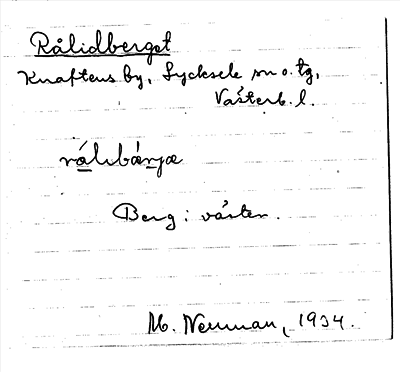 Rålidberget
Knaftens by, Lycksele sn o. tg,
Västerb. l.
rálıbárjæ
Berg i väster.
M. Neuman, 1934.